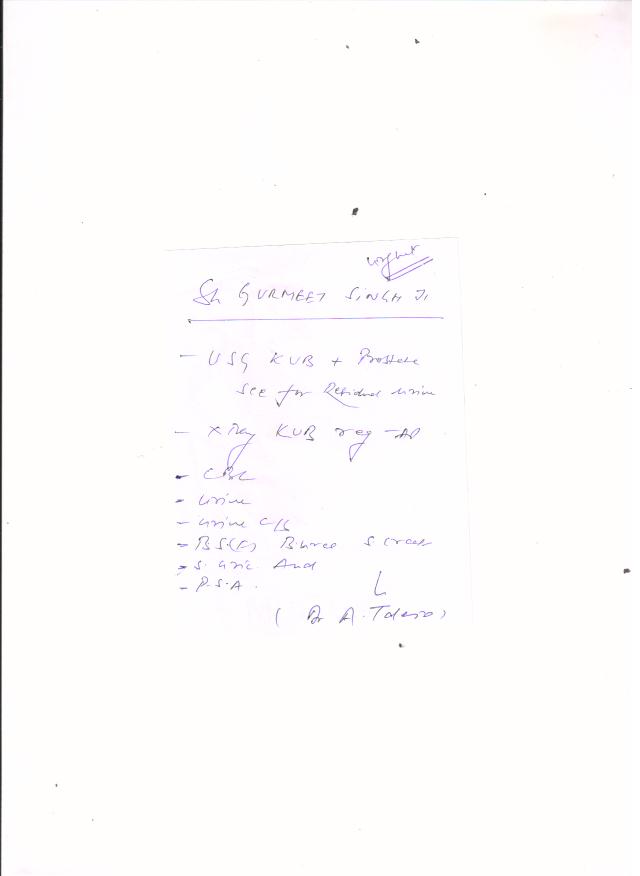 urgent
Sh GURMEET SINGH JI
- USG KUB + Prostate
SEE for Residual urine
- X Ray KUB reg - AP
- CBC
- urine
- urine C/S
- BS(F) B. urea S. creat
- S. uric Acid
- P.S.A.
( Dr A.